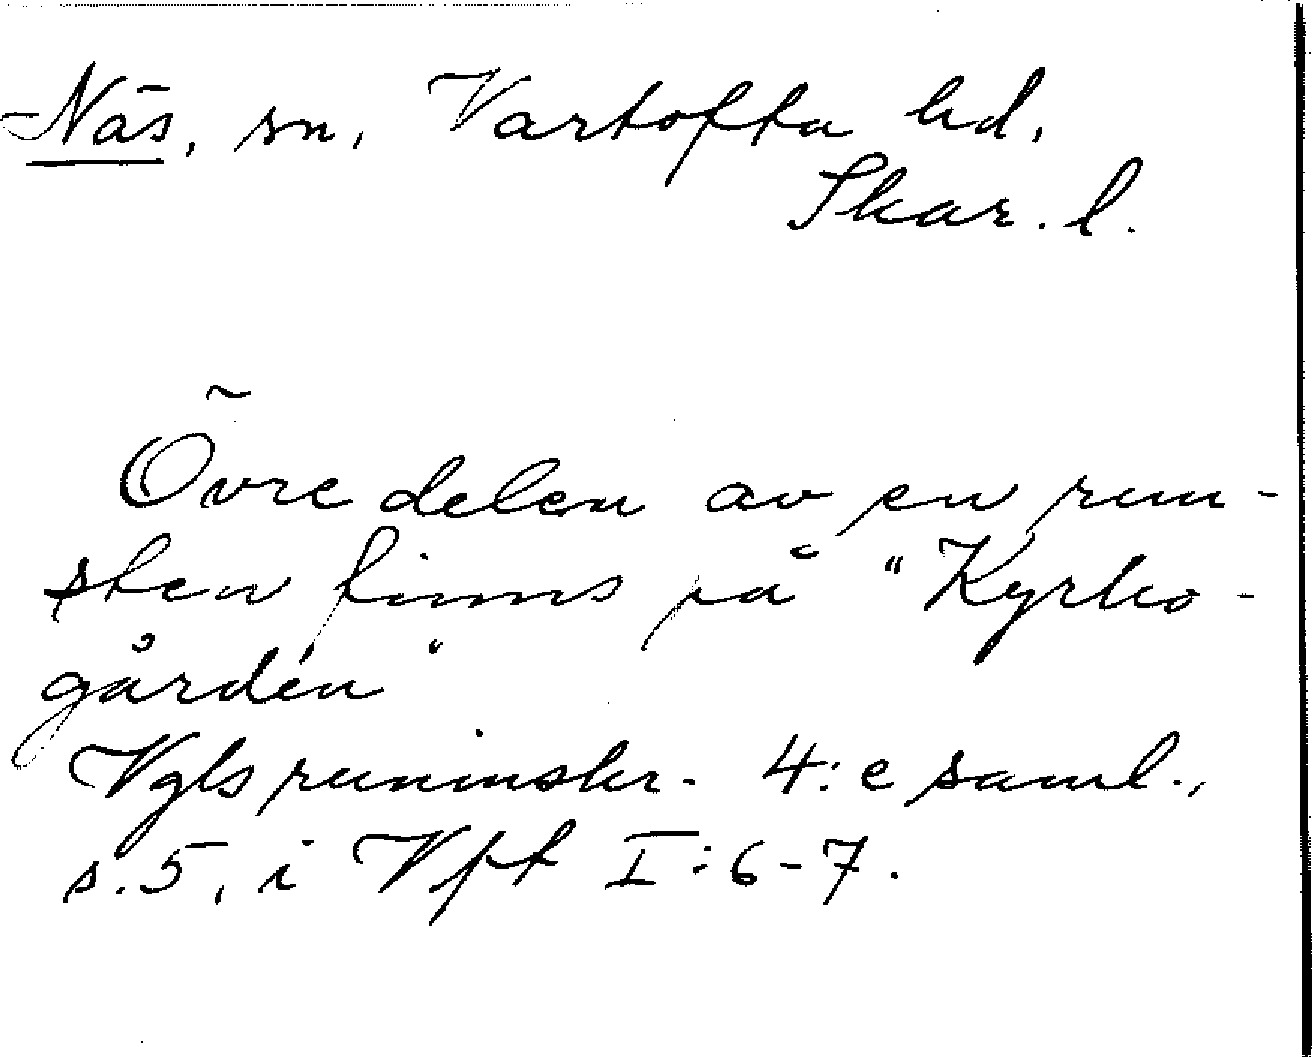 Näs, sn, Vartofta hd,
Skar. l.
Övre delen av en run-
sten finns på "Kyrko-
gården"
Vgls runinskr. 4:e saml.,
s. 5, i Vft I:6-7.